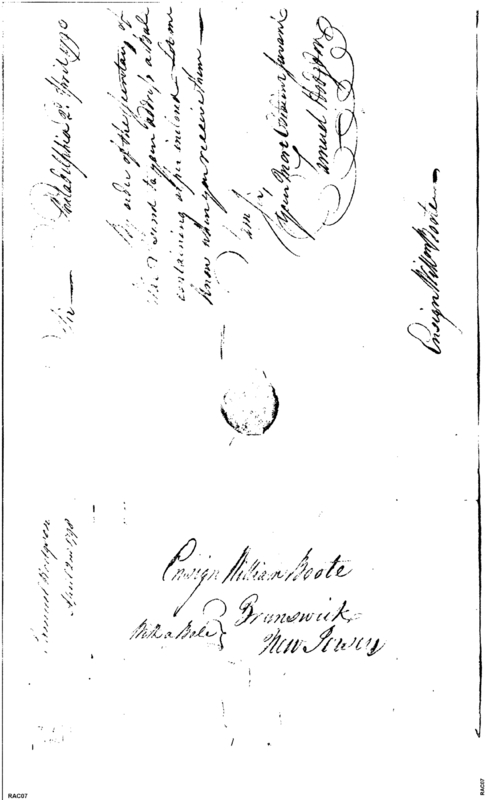 Philadelphia 2d April 1798
Sir
By order of the Secretary of
War I send to your address a Bale
containing as per inclosed. Let me
know when you receive them —
I am Sir
Your Most Obedient Servant
Samuel Hodgdon
Ensign William Boote
Samuel Hodgdon
April 2nd 1798
Ensign William Boote
With a Bale
Brunswick
New Jersey
RAC07
RAC07